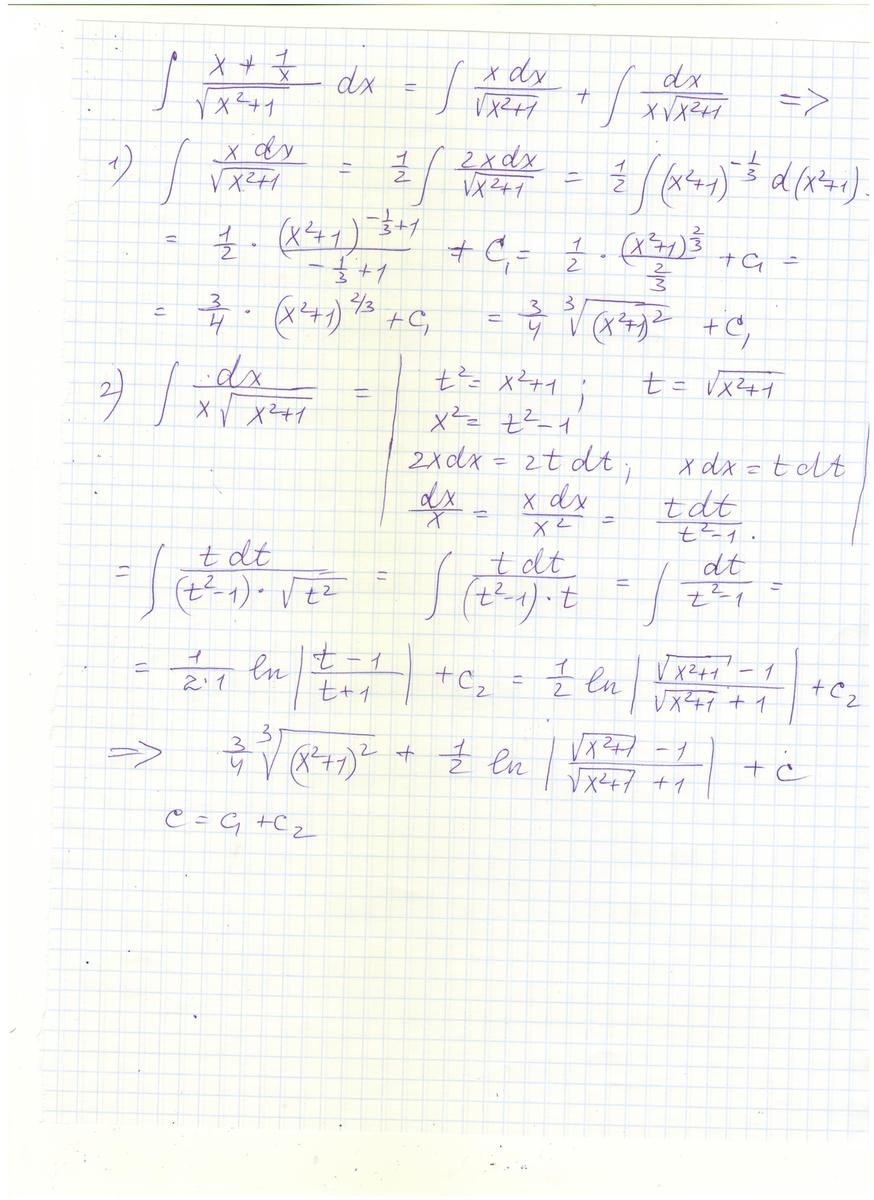 ∫ (x + 1/x)/√(x²+1) dx = ∫ x dx/√(x²+1) + ∫ dx/(x√(x²+1)) =>
1) ∫ x dx/√(x²+1) = 1/2 ∫ 2x dx/√(x²+1) = 1/2 ∫ (x²+1)^(-1/3) d(x²+1).
= 1/2 · (x²+1)^(-1/3+1)/(-1/3+1) + C₁ = 1/2 · (x²+1)^(2/3)/(2/3) + C₁ =
= 3/4 · (x²+1)^(2/3) + C₁ = 3/4 ∛((x²+1)²) + C₁
2) ∫ dx/(x√(x²+1)) = | t² = x²+1 ; t = √(x²+1)
x² = t²-1
2x dx = 2t dt ; x dx = t dt
dx/x = x dx/x² = t dt/(t²-1). |
= ∫ t dt/((t²-1)·√(t²)) = ∫ t dt/((t²-1)·t) = ∫ dt/(t²-1) =
= 1/(2·1) ln |(t-1)/(t+1)| + C₂ = 1/2 ln |(√(x²+1) - 1)/(√(x²+1) + 1)| + C₂
=> 3/4 ∛((x²+1)²) + 1/2 ln |(√(x²+1) - 1)/(√(x²+1) + 1)| + C
C = C₁ + C₂